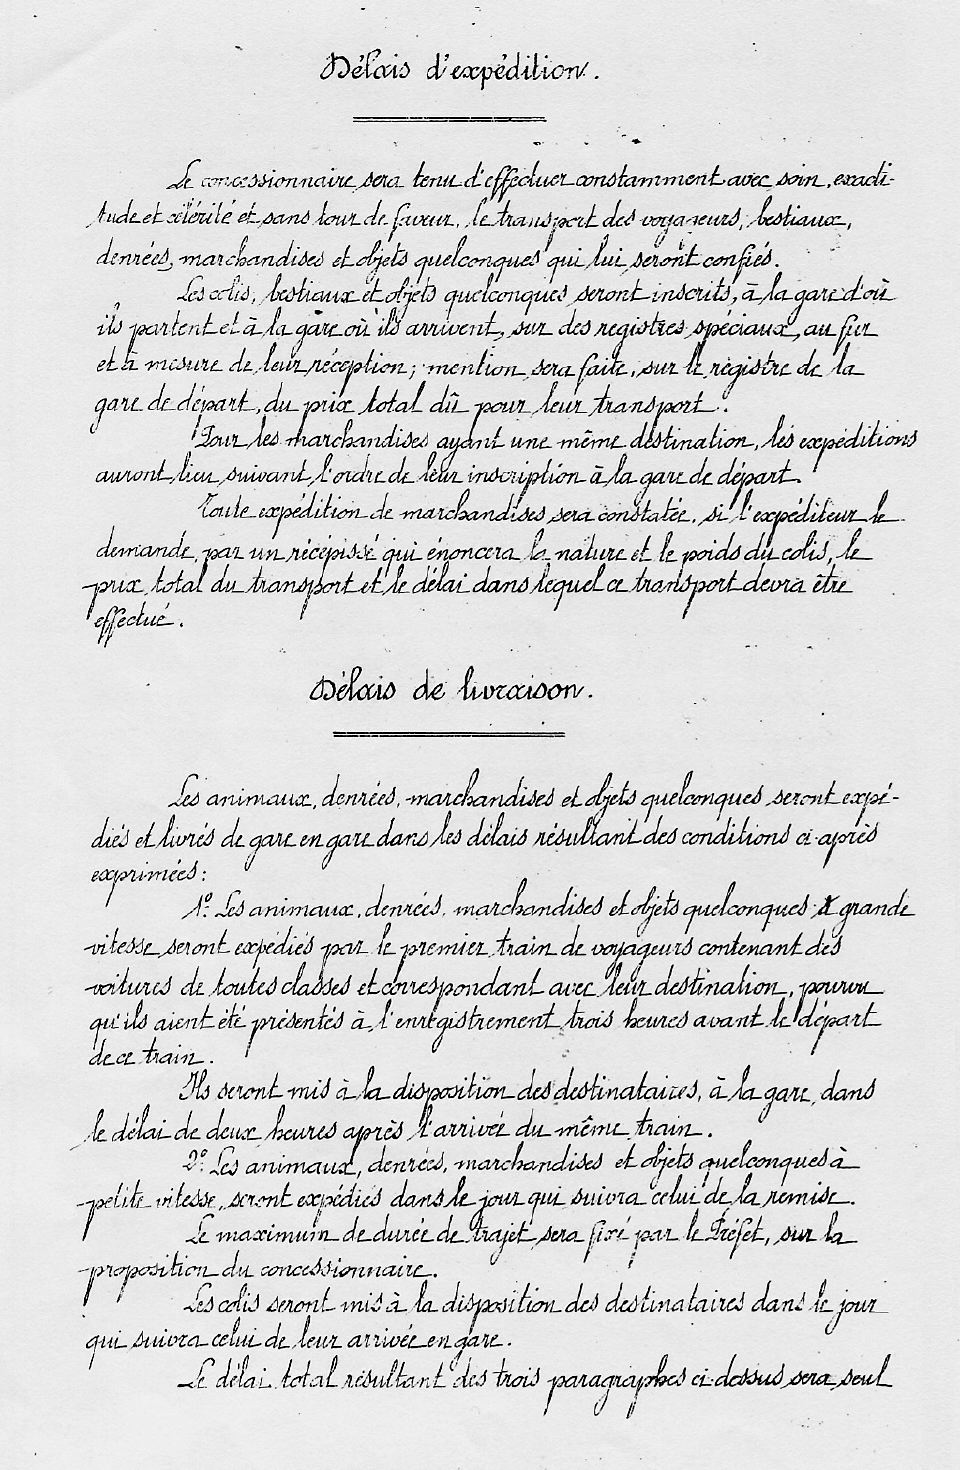 Délais d'expédition.
Le concessionnaire sera tenu d'effectuer constamment avec soin, exacti-
tude et célérité et sans tour de faveur, le transport des voyageurs, bestiaux,
denrées, marchandises et objets quelconques qui lui seront confiés.
Les colis, bestiaux et objets quelconques seront inscrits, à la gare d'où
ils partent et à la gare où ils arrivent, sur des registres spéciaux, au fur
et à mesure de leur réception; mention sera faite, sur le registre de la
gare de départ, du prix total dû pour leur transport.
Pour les marchandises ayant une même destination, les expéditions
auront lieu suivant l'ordre de leur inscription à la gare de départ.
Toute expédition de marchandises sera constatée, si l'expéditeur le
demande, par un récépissé qui énoncera la nature et le poids du colis, le
prix total du transport et le délai dans lequel ce transport devra être
effectué.
Délais de livraison.
Les animaux, denrées, marchandises et objets quelconques seront expé-
diés et livrés de gare en gare dans les délais résultant des conditions ci-après
exprimées:
1º Les animaux, denrées, marchandises et objets quelconques à grande
vitesse seront expédiés par le premier train de voyageurs contenant des
voitures de toutes classes et correspondant avec leur destination, pourvu
qu'ils aient été présentés à l'enregistrement trois heures avant le départ
de ce train.
Ils seront mis à la disposition des destinataires, à la gare, dans
le délai de deux heures après l'arrivée du même train.
2º Les animaux, denrées, marchandises et objets quelconques à
petite vitesse, seront expédiés dans le jour qui suivra celui de la remise.
Le maximum de durée de trajet sera fixé par le Préfet, sur la
proposition du concessionnaire.
Les colis seront mis à la disposition des destinataires dans le jour
qui suivra celui de leur arrivée en gare.
Le délai total résultant des trois paragraphes ci-dessus sera seul